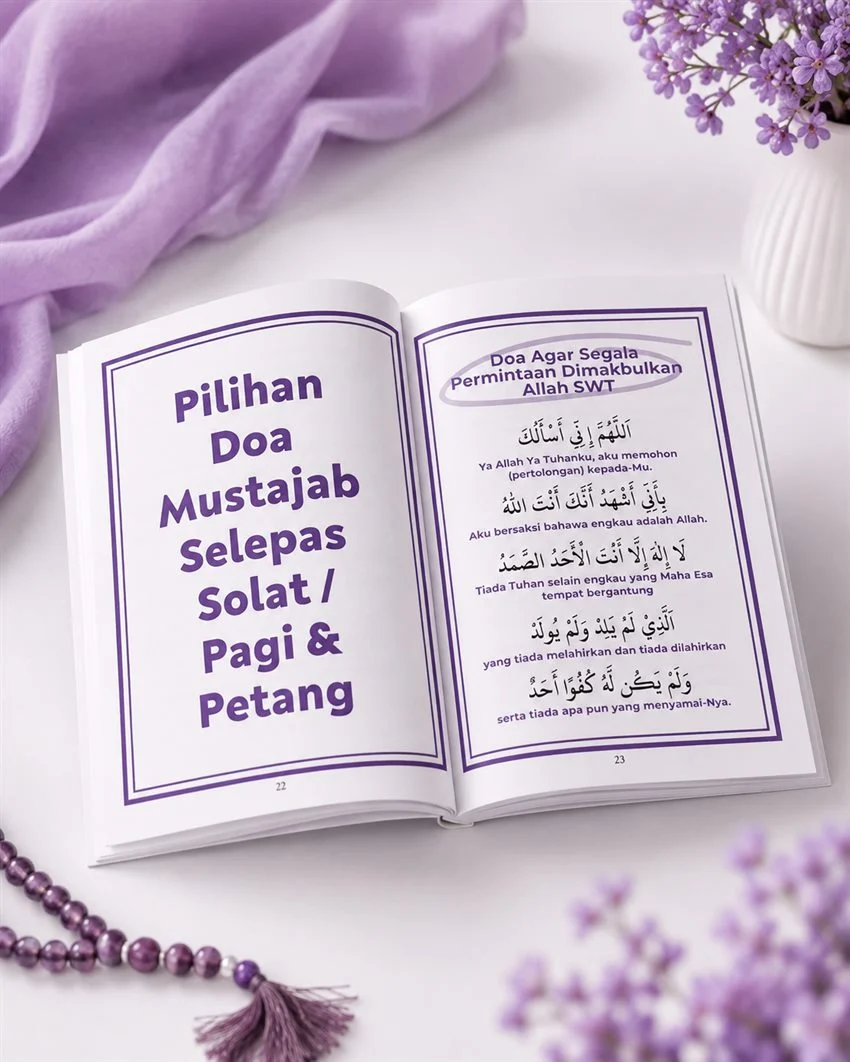 Pilihan
Doa
Mustajab
Selepas
Solat /
Pagi &
Petang
22
Doa Agar Segala
Permintaan Dimakbulkan
Allah SWT
اَللَّهُمَّ إِنِّي أَسْأَلُكَ
Ya Allah Ya Tuhanku, aku memohon
(pertolongan) kepada-Mu.
بِأَنِّي أَشْهَدُ أَنَّكَ أَنْتَ اللهُ
Aku bersaksi bahawa engkau adalah Allah.
لَا إِلٰهَ إِلَّا أَنْتَ الْأَحَدُ الصَّمَدُ
Tiada Tuhan selain engkau yang Maha Esa
tempat bergantung
الَّذِيْ لَمْ يَلِدْ وَلَمْ يُولَدْ
yang tiada melahirkan dan tiada dilahirkan
وَلَمْ يَكُن لَّهُ كُفُوًا أَحَدٌ
serta tiada apa pun yang menyamai-Nya.
23